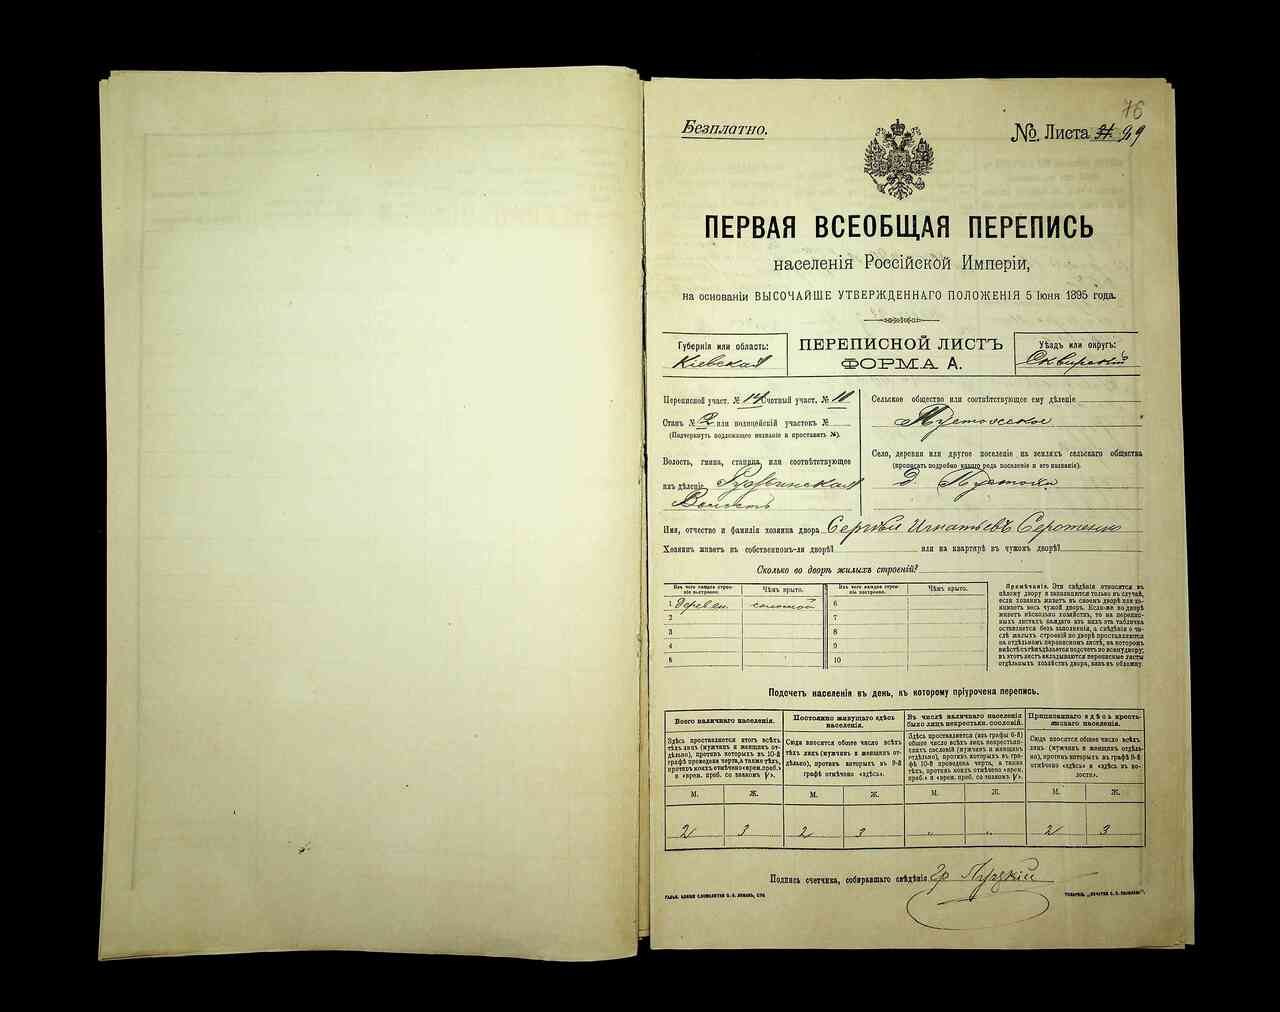 76
Безплатно.
№ Листа 49
ПЕРВАЯ ВСЕОБЩАЯ ПЕРЕПИСЬ
населенія Россійской Имперіи,
на основаніи ВЫСОЧАЙШЕ УТВЕРЖДЕННАГО ПОЛОЖЕНІЯ 5 Іюня 1895 года.
Губернія или область:
Кіевская
ПЕРЕПИСНОЙ ЛИСТЪ
ФОРМА А.
Уѣздъ или округъ:
Сквирскій
Переписной участ. № 14 Счетный участ. № 10
Станъ № 2 или полицейскій участокъ №
(Подчеркнуть подлежащее названіе и проставить №).
Волость, гмина, станица или соотвѣтствующее
имъ дѣленіе
Волость
Сельское общество или соотвѣтствующее ему дѣленіе
Село, деревня или другое поселеніе на земляхъ сельскаго общества
(прописать подробно какого рода поселеніе и его названіе).
д. Пустоха
Имя, отчество и фамилія хозяина двора Сергѣй Игнатьевъ Серотенко
Хозяинъ живетъ въ собственномъ-ли дворѣ? или на квартирѣ въ чужомъ дворѣ?
Сколько во дворѣ жилыхъ строеній?
Изъ чего каждое строеніе выстроено.
Чѣмъ крыто.
Изъ чего каждое строеніе выстроено.
Чѣмъ крыто.
1 дерев ян. соломой 6
2 7
3 8
4 9
5 10
Примѣчаніе. Эти свѣдѣнія относятся къ
цѣлому двору и записываются только въ случаѣ,
если хозяинъ живетъ въ своемъ дворѣ или занимаетъ весь чужой дворъ. Если-же во дворѣ
живетъ нѣсколько хозяйствъ, то на переписныхъ листахъ каждаго изъ нихъ эта табличка
оставляется безъ заполненія, а свѣдѣнія о числѣ жилыхъ строеній во дворѣ проставляются
на отдѣльномъ переписномъ листѣ, на которомъ
вмѣстѣ съ тѣмъ дѣлается подсчетъ по всему двору;
въ этотъ листъ вкладываются переписные листы
отдѣльныхъ хозяйствъ двора, какъ въ обложку.
Подсчетъ населенія въ день, къ которому пріурочена перепись.
Всего наличнаго населенія.
Здѣсь проставляется итогъ всѣхъ
тѣхъ лицъ (мужчинъ и женщинъ отдѣльно), противъ которыхъ въ 10-й
графѣ проведена черта, а также тѣхъ,
противъ коихъ отмѣчено «врем. преб.»
и «врем. преб. со знакомъ V».
Постоянно живущаго здѣсь
населенія.
Сюда вносится общее число всѣхъ
тѣхъ лицъ (мужчинъ и женщинъ отдѣльно), противъ которыхъ въ 9-й
графѣ отмѣчено «здѣсь».
Въ числѣ наличнаго населенія
было лицъ некрестьян. сословій.
Здѣсь проставляется (изъ графы 6-й)
общее число всѣхъ лицъ некрестьянскихъ сословій (мужчинъ и женщинъ
отдѣльно), противъ которыхъ въ графѣ 10-й проведена черта, а также
тѣхъ, противъ коихъ отмѣчено «врем.
преб.» и «врем. преб. со знакомъ V».
Приписаннаго здѣсь крестьянскаго населенія.
Сюда вносится общее число всѣхъ
лицъ (мужчинъ и женщинъ отдѣльно), противъ которыхъ въ графѣ 8-й
отмѣчено «здѣсь» и «здѣсь въ волости».
М. Ж. М. Ж. М. Ж. М. Ж.
2 3 2 3 „ „ 2 3
Подпись счетчика, собиравшаго свѣдѣнія